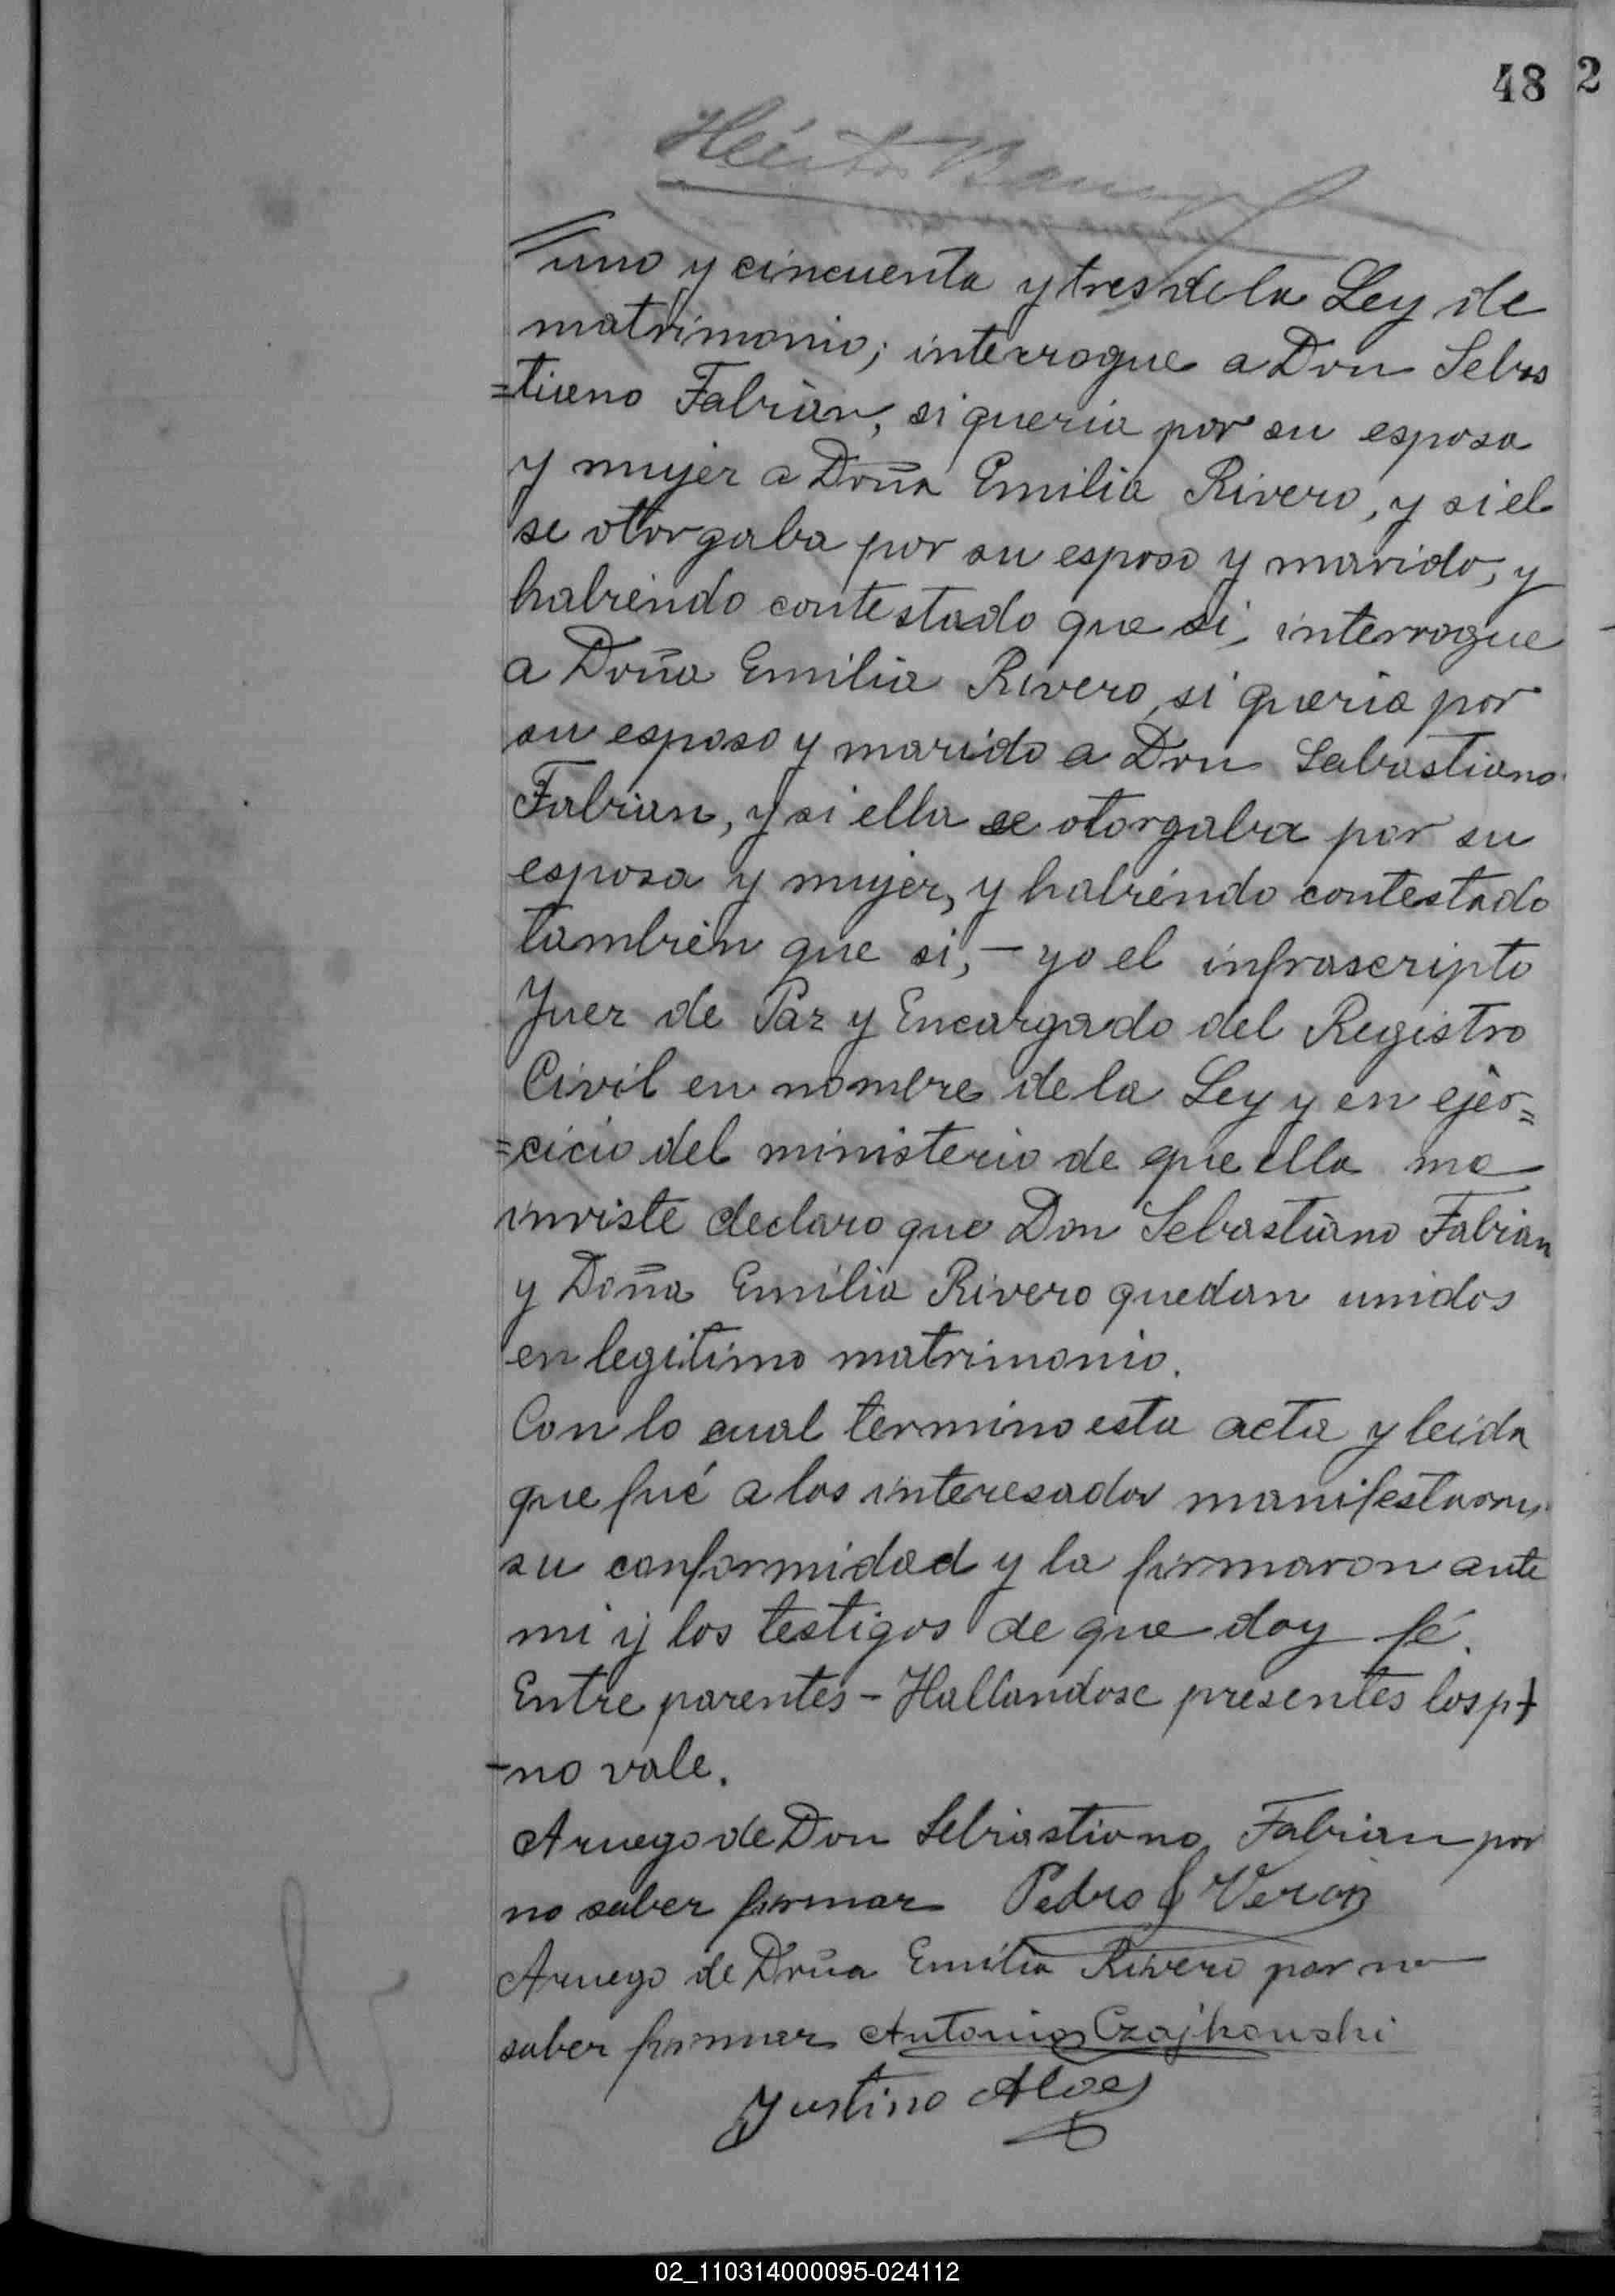 48 2
Héctor
uno y cincuenta y tres de la Ley de
matrimonio; interrogue a Don Sebas
=tiano Fabian, si queria por su esposa
y mujer a Doña Emilia Rivero, y si el
se otorgaba por su esposo y marido, y
habiendo contestado que si, interrogue
a Doña Emilia Rivero, si queria por
su esposo y marido a Don Sebastiano
Fabian, y si ella se otorgaba por su
esposa y mujer, y habiéndo contestado
tambien que si, - yo el infrascripto
Juez de Paz y Encargado del Registro
Civil en nombre de la Ley y en ejer=
=cicio del ministerio de que ella me
inviste declaro que Don Sebastiano Fabian
y Doña Emilia Rivero quedan unidos
en legitimo matrimonio.
Con lo cual termino esta acta y leida
que fué a los interesados manifestaron
su conformidad y la firmaron ante
mi y los testigos de que doy fé.
Entre parentes - Hallandose presentes los p)
-no vale.
A ruego de Don Sebastiano Fabian por
no saber firmar Pedro J Veron
A ruego de Doña Emilia Rivero por no
saber firmar Antonio Czajkowski
Justino Alves
02_110314000095-024112